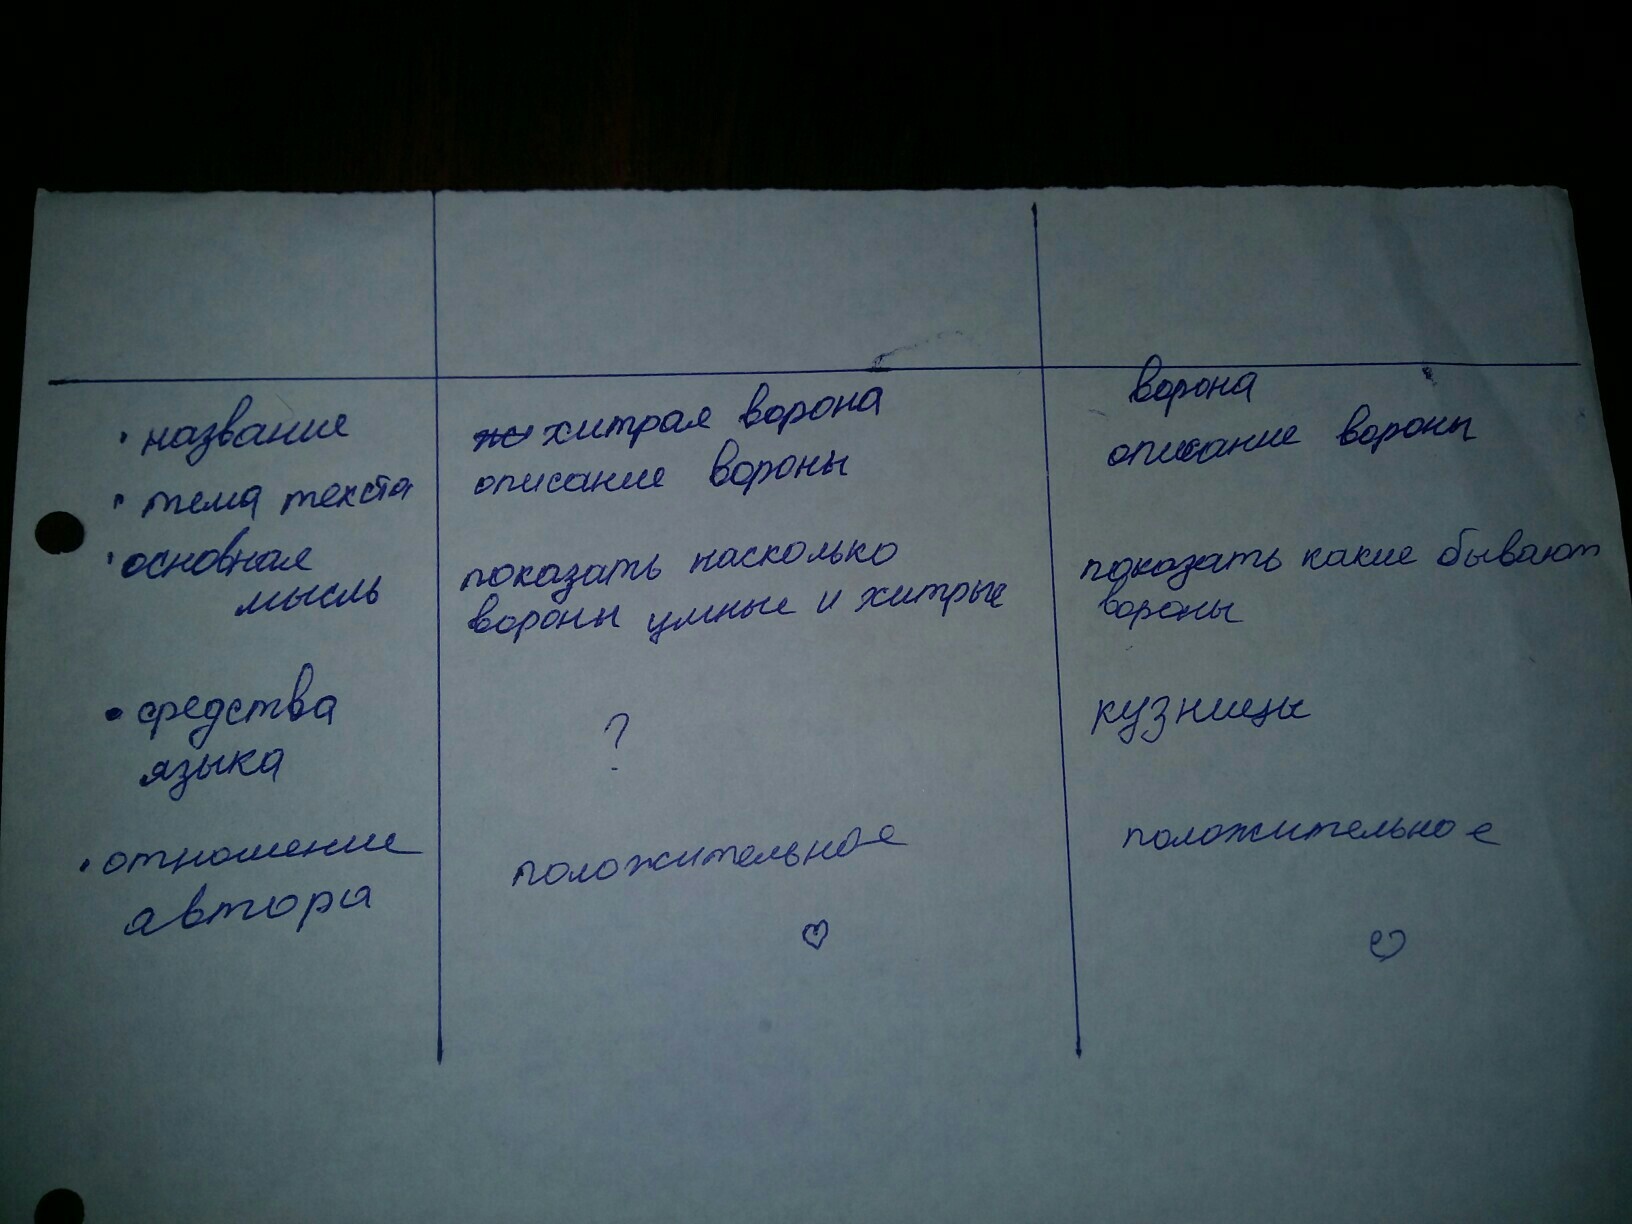 • название
• тема текста
• основная
мысль
• средства
языка
• отношение
автора
хитрая ворона
описание вороны
показать насколько
вороны умные и хитрые
?
положительное
ворона
описание вороны
показать какие бывают
вороны
кузницы
положительное